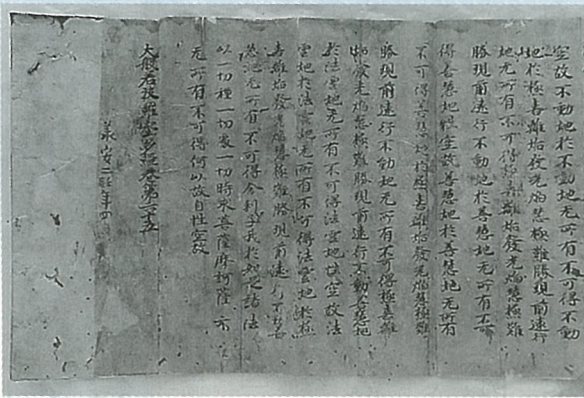 空故不動地於不動地无所有不可得不動
地於極喜離垢發光焰慧極難勝現前遠行
地无所有不可得極喜離垢發光焰慧極難
勝現前遠行不動地於善慧地无所有不可
得善慧地性空故善慧地於善慧地无所有
不可得善慧地於極喜離垢發光焰慧極難
勝現前遠行不動地无所有不可得極喜離
垢發光焰慧極難勝現前遠行不動善慧地
於法雲地无所有不可得法雲地性空故法
雲地於法雲地无所有不可得法雲地於極
喜離垢發光焰慧極難勝現前遠行不動善
慧地无所有不可得舍利子我於如是諸法
以一切種一切處一切時求菩薩摩訶薩
无所有不可得何以故自性空故
大般若波羅蜜多經卷第六十五
義安二